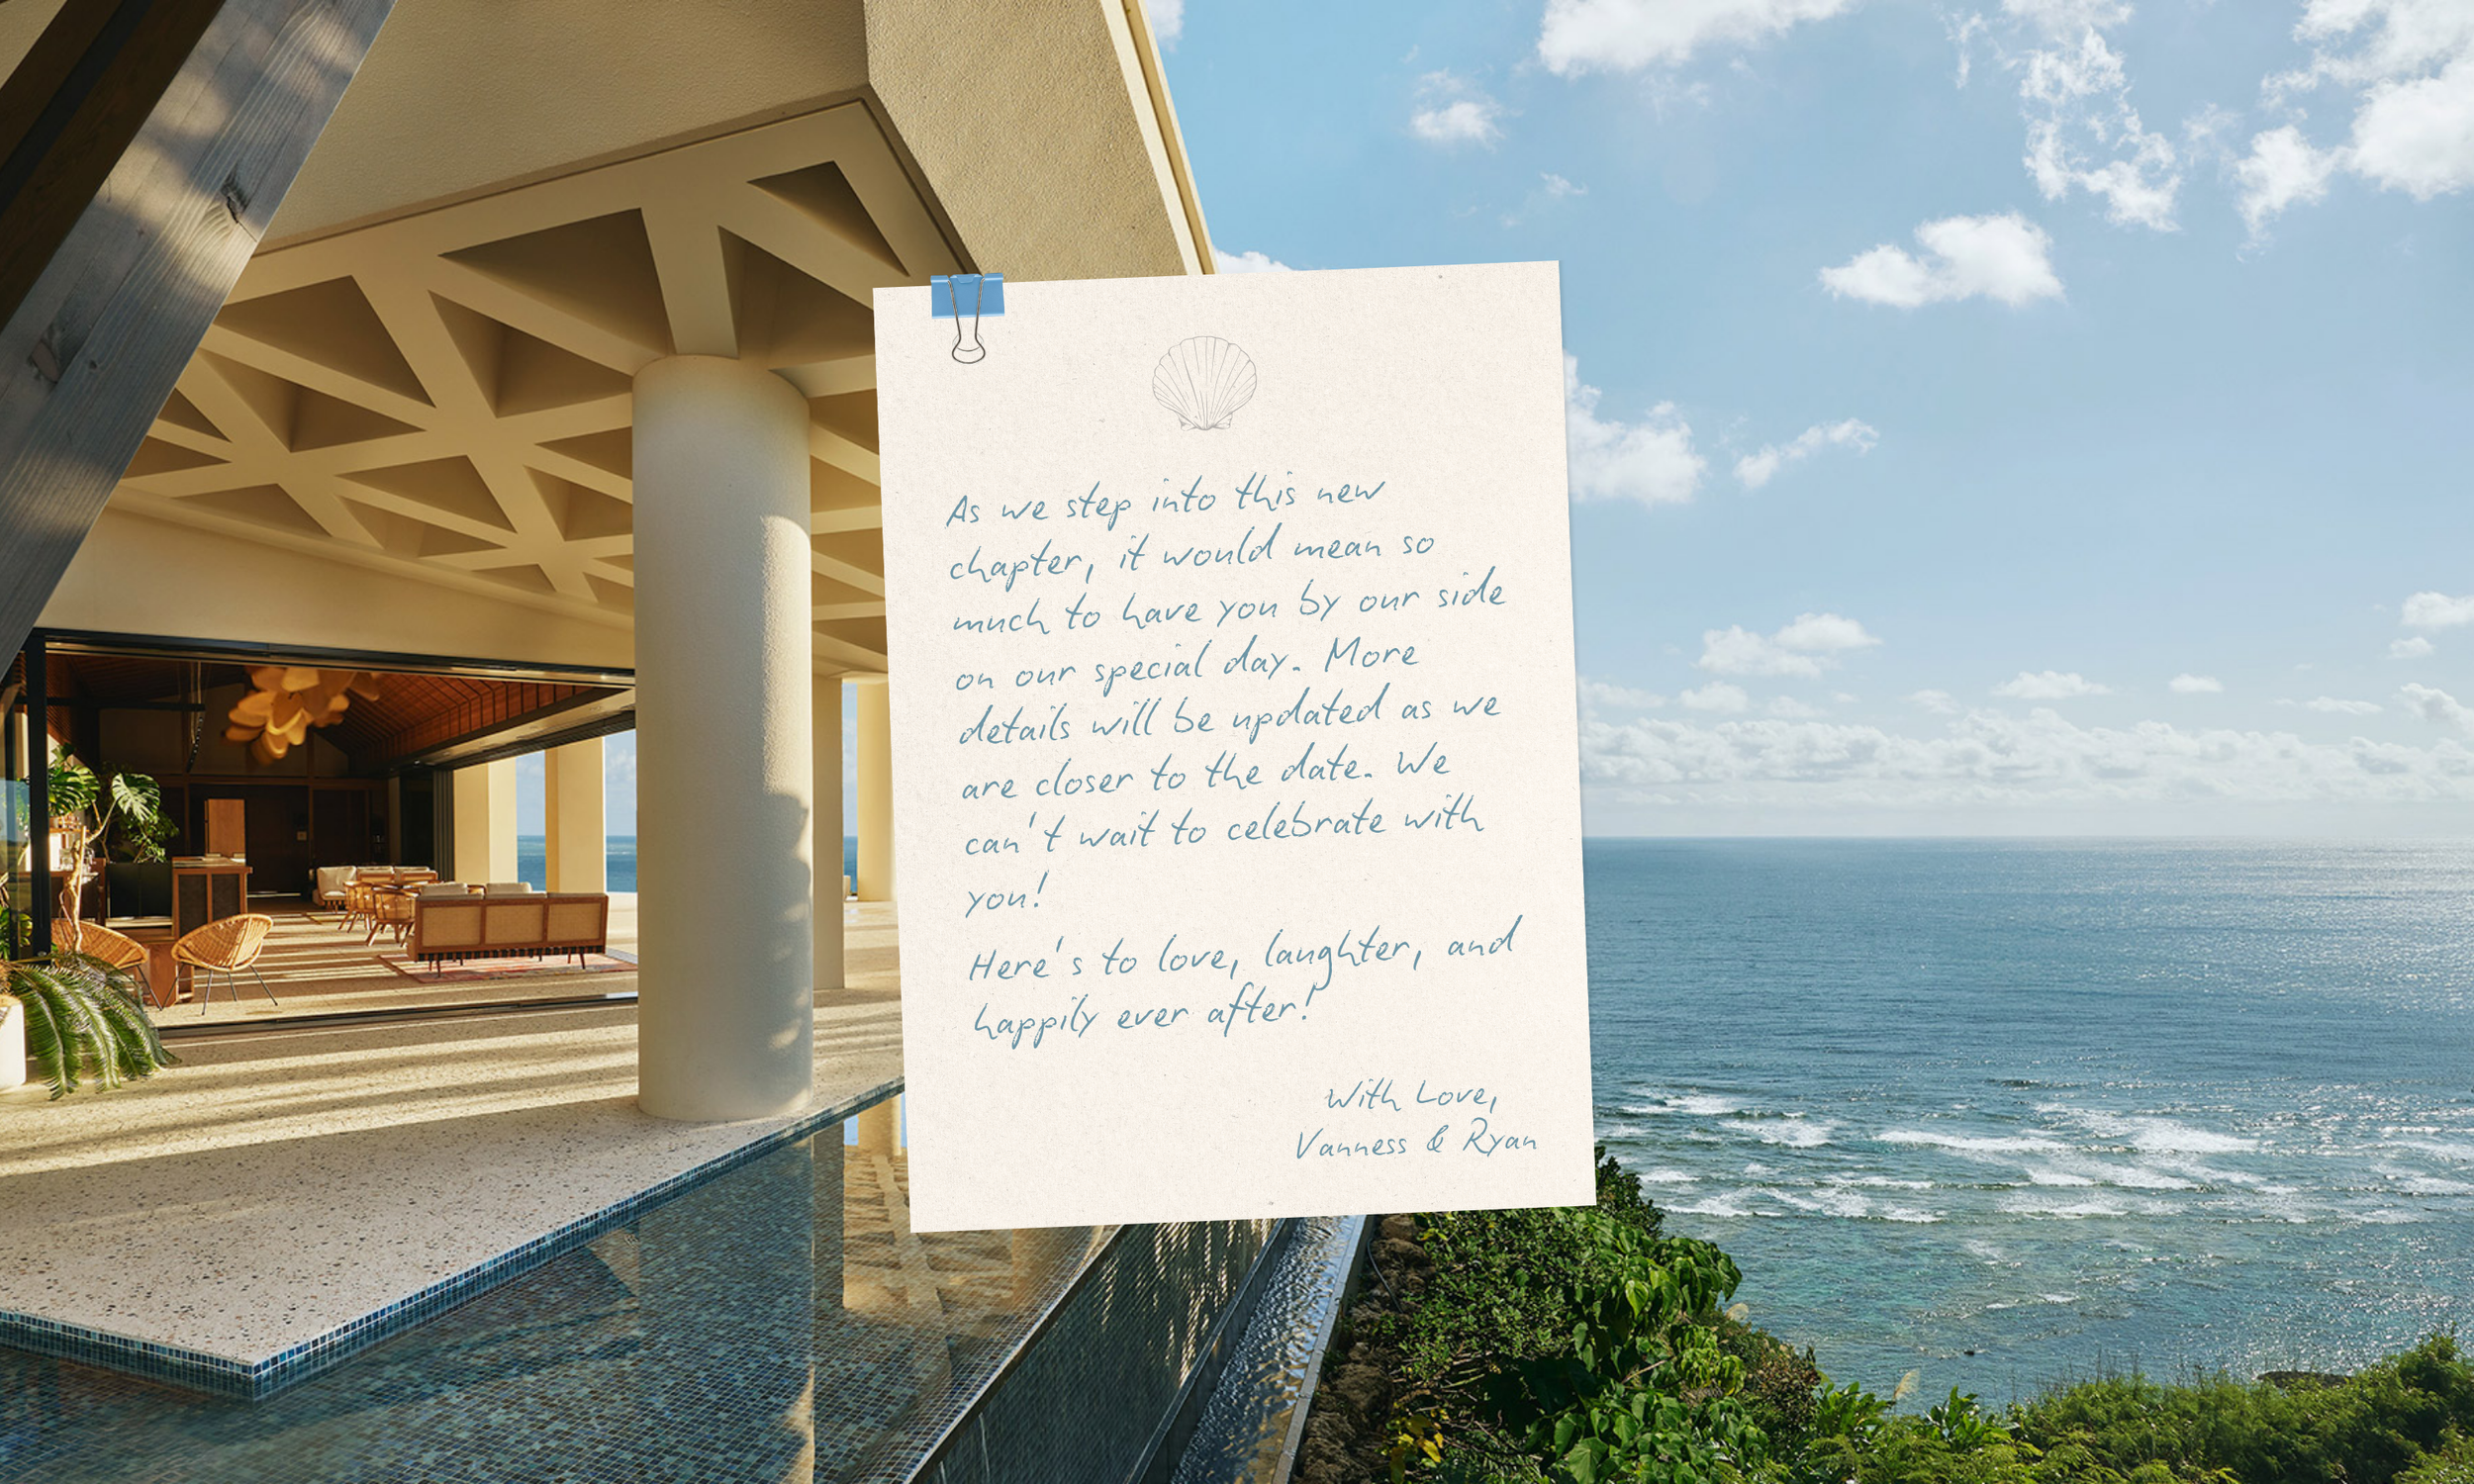 As we step into this new
chapter, it would mean so
much to have you by our side
on our special day. More
details will be updated as we
are closer to the date. We
can't wait to celebrate with
you!
Here's to love, laughter, and
happily ever after!
With Love,
Vanness & Ryan